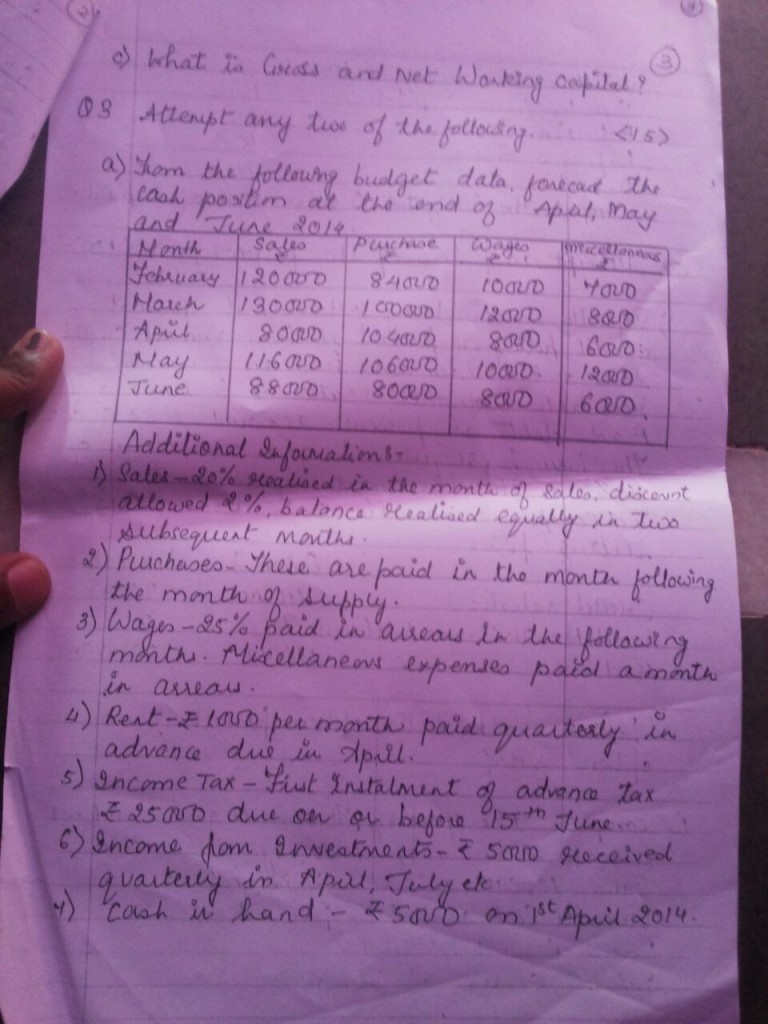 3
c) What is Gross and Net Working Capital?
Q3 Attempt any two of the following. <15>
a) From the following budget data, forecast the
cash position at the end of April, May
and June 2014.
Month Sales ₹ Purchase ₹ Wages ₹ Miscellaneous ₹
February 120000 84000 10000 7000
March 130000 100000 12000 8000
April 80000 104000 8000 6000
May 116000 106000 10000 12000
June 88000 80000 8000 6000
Additional Informations-
1) Sales-20% realised in the month of sales, discount
allowed 2%, balance realised equally in two
subsequent months.
2) Purchases-These are paid in the month following
the month of supply.
3) Wages-25% paid in arrears in the following
month. Miscellaneous expenses paid a month
in arrears.
4) Rent-₹1000 per month paid quarterly in
advance due in April.
5) Income Tax-First Instalment of advance tax
₹25000 due on or before 15th June.
6) Income from Investments-₹5000 received
quarterly in April, July etc
7) Cash in hand-₹5000 on 1st April 2014.